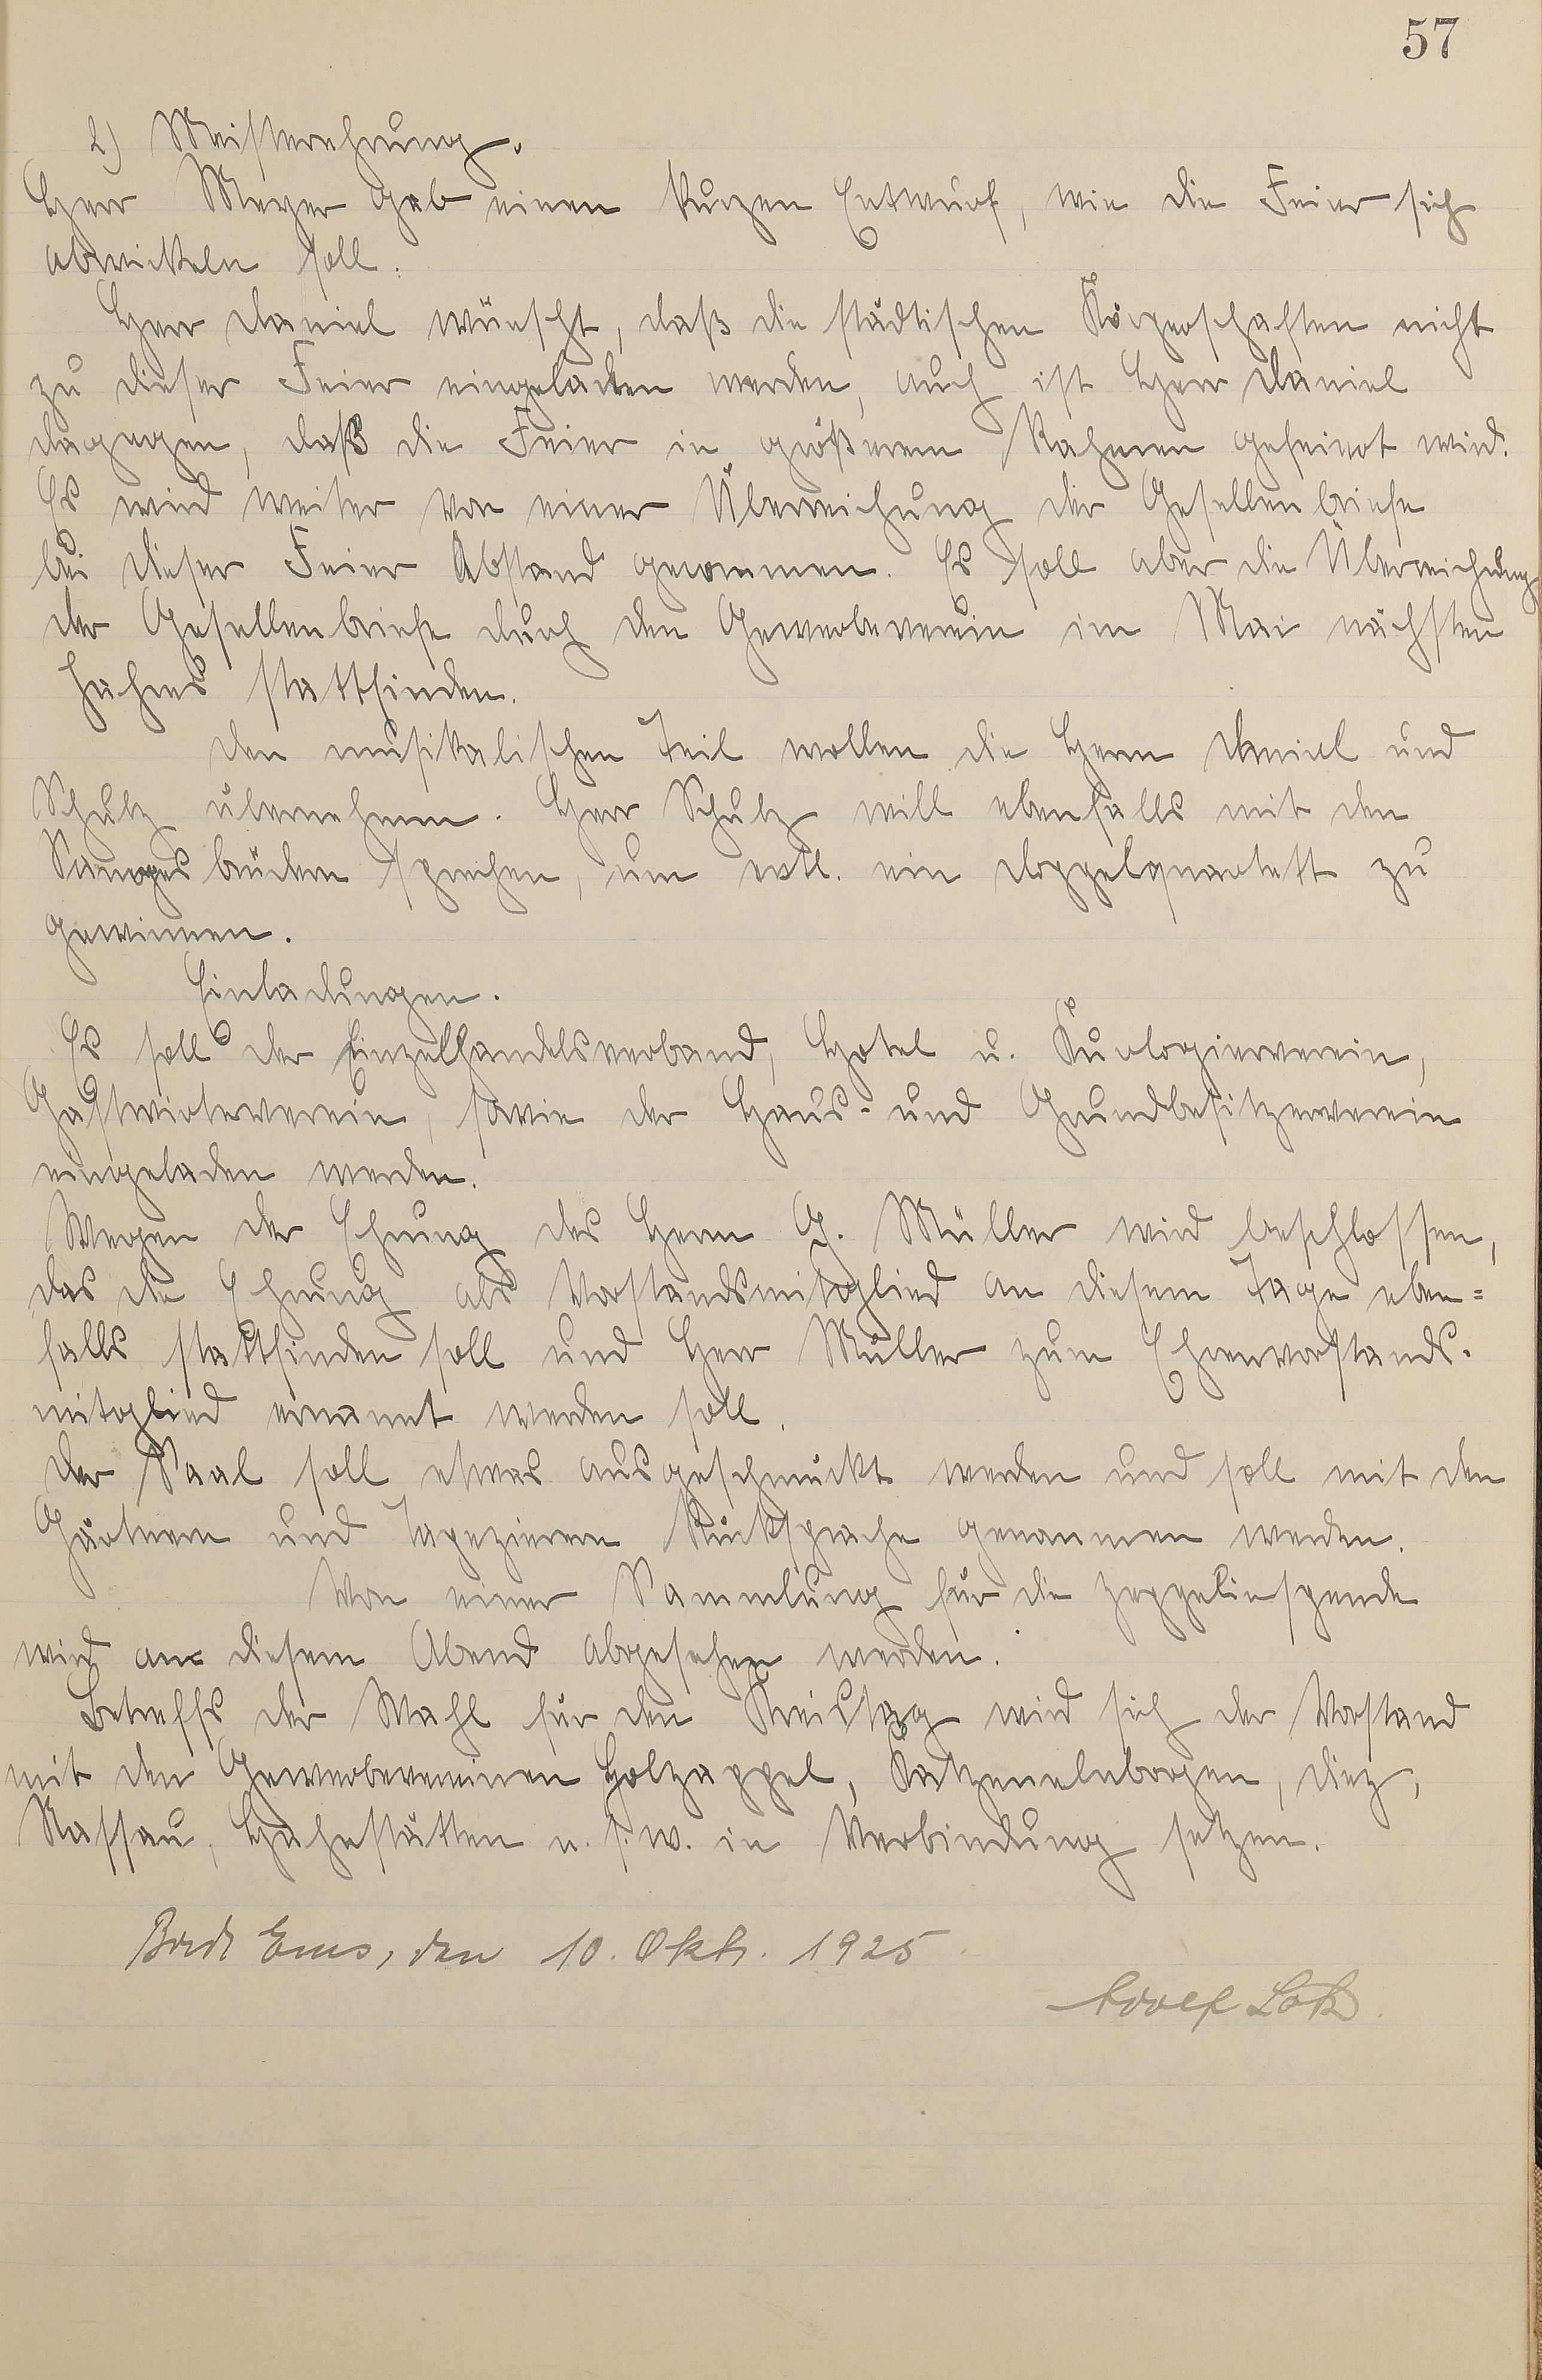 57
2) Meisterehrung.
Herr Meyer gab einen kurzen Entwurf, wie die Feier sich
abwickeln soll.
Herr Daniel wünscht, daß die städtischen Körperschaften nicht
zu dieser Feier eingeladen werden, auch ist Herr Daniel
dagegen, daß die Feier in größerem Rahmen gefeiert wird.
Es wird weiter von einer Überreichung der Gesellenbriefe
bei dieser Feier Abstand genommen. Es soll aber die Überreichung
der Gesellenbriefe durch den Gewerbeverein im Mai nächsten
Jahres stattfinden.
Den musikalischen Teil wollen die Herrn Daniel und
Schulz übernehmen. Herr Schulz will ebenfalls mit den
Sangesbrüdern sprechen, um evtl. ein Doppelquartett zu
gewinnen.
Einladungen.
Es soll der Einzelhandelsverband, Hotel u. Kurlogierverein,
Gastwirteverein, sowie der Haus- und Grundbesitzerverein
eingeladen werden.
Wegen der Ehrung des Herrn G. Müller wird beschlossen,
das die Ehrung als Vorstandsmitglied an diesem Tage eben=
falls stattfinden soll und Herr Müller zum Ehrenvorstands-
mitglied ernannt werden soll.
Der Saal soll etwas ausgeschmückt werden und soll mit den
Gärtnern und Tapezierern Rücksprache genommen werden.
Von einer Sammlung für die Zeppelinspende
wird an diesem Abend abgesehen werden.
Betreffs der Wahl für den Kreistag wird sich der Vorstand
mit den Gewerbevereinen Holzappel, Katzenelnbogen, Diez,
Nassau, Hahnstätten u. s. w. in Verbindung setzen.
Bad Ems, den 10. Okt. 1925
Adolf Lotz